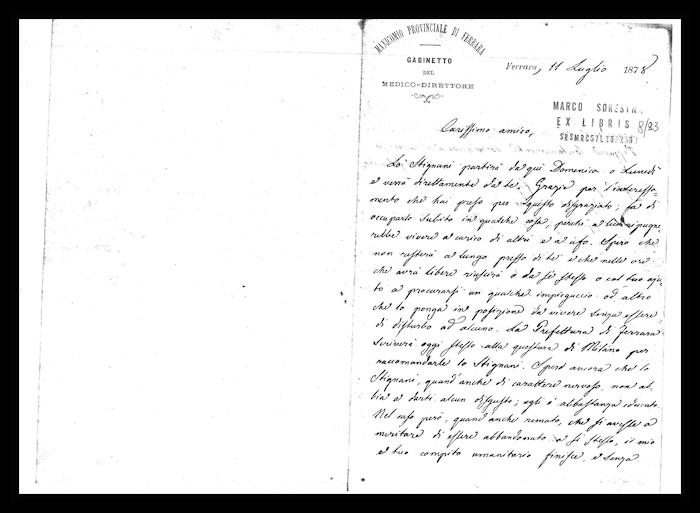 MANICOMIO PROVINCIALE DI FERRARA
GABINETTO
DEL
MEDICO-DIRETTORE
Ferrara, 11 Luglio 1878
MARCO SORESINA
EX LIBRIS 8/23
Carissimo amico,
Lo Stignani partirà da qui Domenica o Lunedì
e verrà direttamente da te. Grazie per l'interessa-
mento che hai preso per questo disgraziato; fa di
occuparlo subito in qualche cosa, perchè a lui ripugne-
rebbe vivere a carico di altri e a ufo. Spero che
non resterà a lungo presso di te e che nelle ore
che avrà libere riuscirà o da sè stesso o col tuo aju-
to a procurarsi un qualche impieguccio od altro
che lo ponga in posizione da vivere senza essere
di disturbo ad alcuno. La Prefettura di Ferrara
scriverà oggi stesso alla questura di Milano per
raccomandarle lo Stignani. Spero ancora che lo
Stignani, quand'anche di carattere nervoso, non ab-
bia a darti alcun disgusto; egli è abbastanza educato.
Nel caso però, quand'anche remoto, che si avesse a
meritare di essere abbandonato a sè stesso, il mio
e tuo compito umanitario finisce, e senza